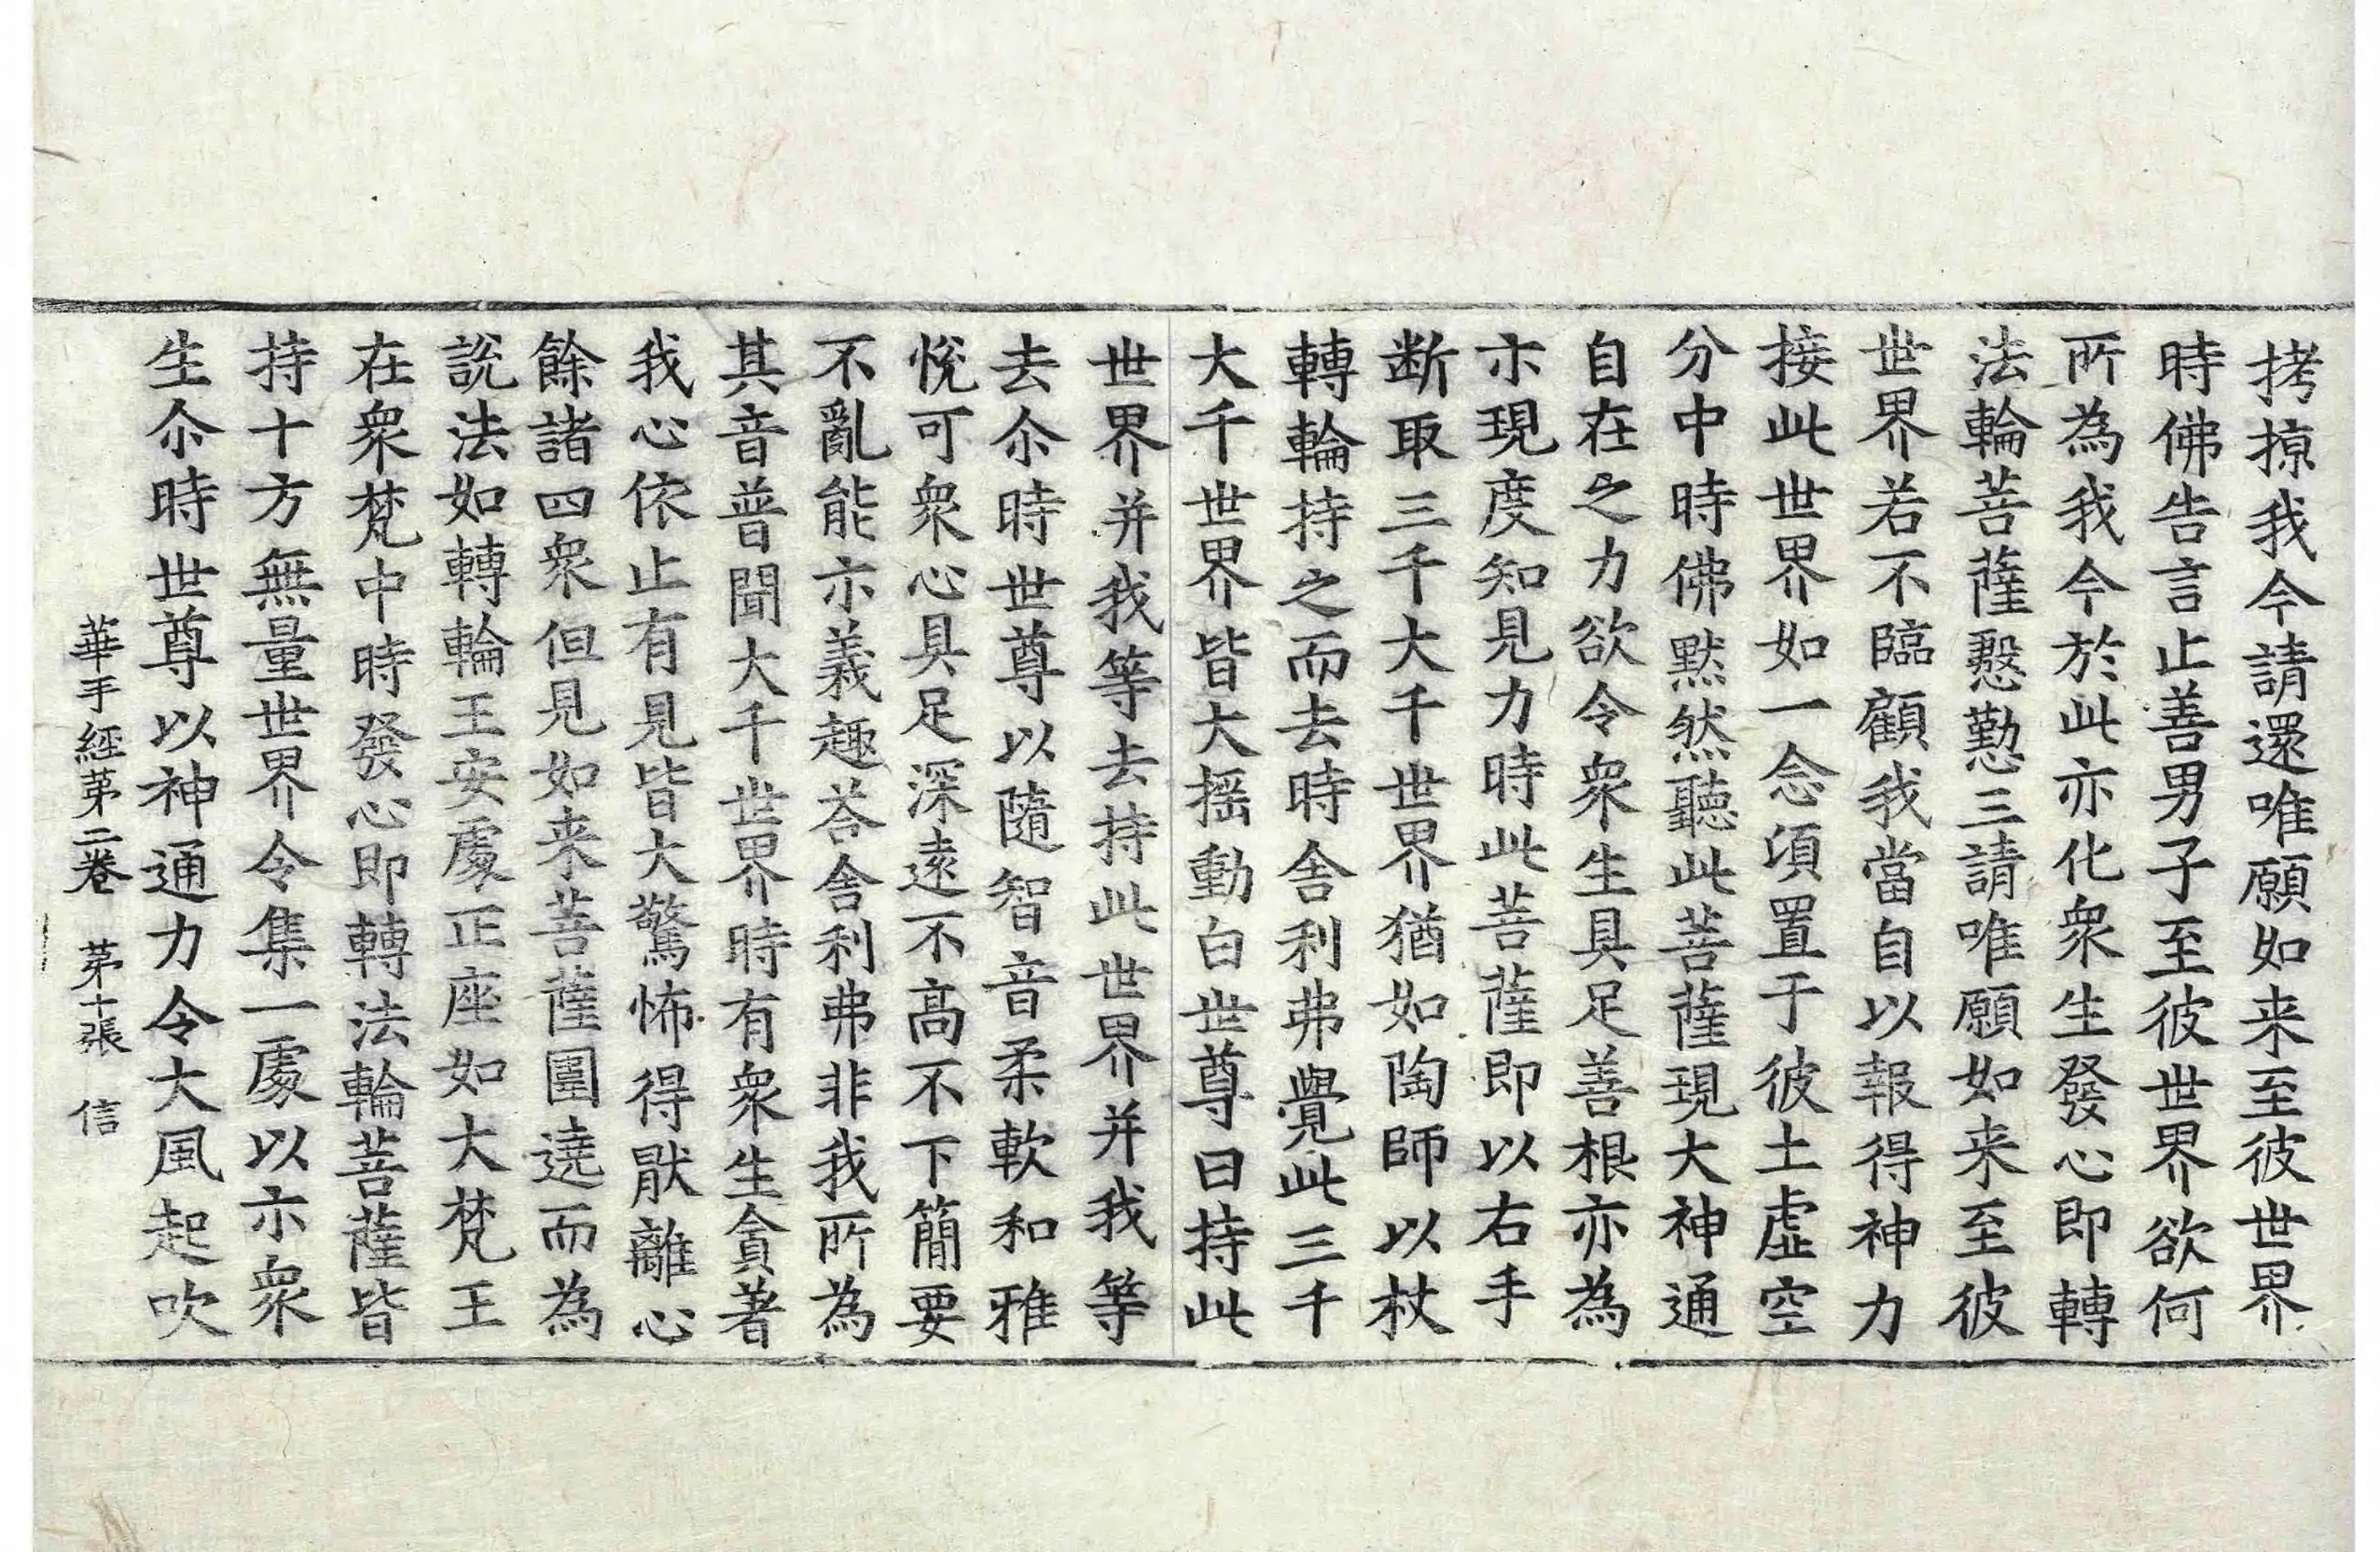 拷掠我今請還唯願如来至彼世界
時佛告言止善男子至彼世界欲何
所為我今於此亦化衆生發心即轉
法輪菩薩慇懃三請唯願如来至彼
世界若不臨顧我當自以報得神力
接此世界如一念湏置于彼土虛空
分中時佛黙然聽此菩薩現大神通
自在之力欲令衆生具足善根亦為
示現度知見力時此菩薩即以右手
断取三千大千世界猶如陶師以杖
轉輪持之而去時舎利弗覺此三千
大千世界皆大揺動白世尊曰持此
世界并我等去持此世界并我等
去尒時世尊以隨智音柔軟和雅
悅可衆心具足深遠不高不下簡要
不亂能示義趣荅舎利弗非我所為
其音普聞大千世界時有衆生貪著
我心依止有見皆大驚怖得猒離心
餘諸四衆但見如来菩薩圍遶而為
說法如轉輪王安處正座如大梵王
在衆梵中時發心即轉法輪菩薩皆
持十方無量世界令集一處以示衆
生尒時世尊以神通力令大風起吹
華手經第二卷 第十張 信